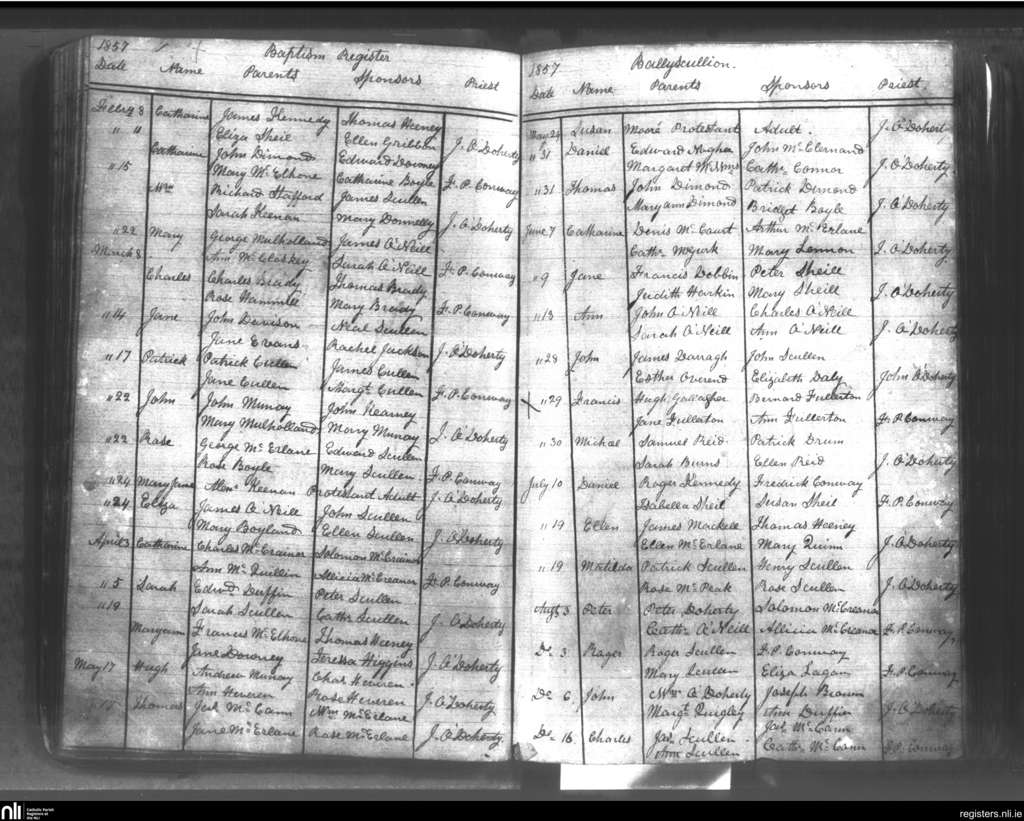 1857
Baptism Register
Date Name Parents Sponsors Priest
Feby 8 Catharine James Kennedy Thomas Heeney
" " Eliza Sheil Ellen Gribbin J. O'Doherty
Catharine John Dimond Edward Downey
" 15 Mary McElhone Catharine Boyle F. P. Conway
Wm Richard Stafford James Scullen
Sarah Keenan Mary Donnelly J. O'Doherty
" 22 Mary George Mulholland James O'Neill
March 8 Ann McCloskey Sarah O'Neill F. P. Conway
Charles Charles Brady Thomas Brady
Rose Hammill Mary Brady F. P. Conway
" 14 Jane John Davison Neal Scullen
Jane Evans Rachel Jackson J. O'Doherty
" 17 Patrick Patrick Cullen James Cullen
Jane Cullen Margt. Cullen F. P. Conway
" 22 John John Murray John Kearney
Mary Mulholland Mary Murray J. O'Doherty
" 22 Rose George McErlane Edward Scullen
Rose Boyle Mary Scullen F. P. Conway
" 24 Mary Jane Keenan Protestant Adult J. O'Doherty
" 24 Eliza James O'Neill John Scullen
Mary Boyland Ellen Scullen J. O'Doherty
April 3 Catharine Charles McCreanor Solomon McCreanor
Ann McQuillin Allicia McCreanor F. P. Conway
" 5 Sarah Edwd Duffin Peter Scullen
" 19 Sarah Scullen Cathr. Scullen J. O'Doherty
Maryann Francis McElhone Thomas Heeney
Jane Downey Teressa Higgins J. O'Doherty
May 17 Hugh Andrew Murray Chas Heveren
Ann Heveren Rose Heveren J. O'Doherty
Thomas Jas. McCann Wm McErlane
Jane McErlane Rose McErlane J. O'Doherty
1857 Ballyscullion.
Date Name Parents Sponsors Priest.
May 24 Susan Moore Protestant Adult. J. O'Dohert
" 31 Daniel Edward Hughes John McClernand
Margaret Cathr. Connor J. O'Doherty
" 31 Thomas John Dimond Patrick Dimond
Maryann Dimond Bridget Boyle J. O'Doherty
June 7 Catharine Denis McCourt Arthur McErlane
Cathr. McGurk Mary Lennon J. O'Doherty
" 9 Jane Francis Dobbin Peter Sheill
Judith Harkin Mary Sheill J. O'Doherty
" 13 Ann John O'Neill Charles O'Neill
Sarah O'Neill Ann O'Neill J. O'Doherty
" 28 John James Darragh John Scullen
Esther Overend Elizabeth Daly John O'Doherty
" 29 Francis Hugh Gallagher Bernard Fullerton
Jane Fullerton Ann Fullerton F. P. Conway
" 30 Michal Samuel Reid Patrick Drum
Sarah Burns Ellen Reid J. O'Doherty
July 10 Daniel Roger Kennedy Fredrick Conway
Isabella Sheil Susan Sheil F. P. Conway
" 19 Ellen James Mackell Thomas Heeney
Ellen McErlane Mary Quinn J. O'Doherty
" 19 Matilda Patrick Scullen Henry Scullen
Rose McPeak Rose Scullen J. O'Doherty
Augt 3 Peter Peter Doherty Solomon McCreanor
Cathr. O'Neill Allicia McCreanor F. P. Conway
Do. 3 Roger Roger Scullen F. P. Conway
Mary Scullen Eliza Lagan F. P. Conway
Do. 6 John Wm. O'Doherty Joseph Brown
Margt. Quigley Ann Duffin J. O'Doherty
Do. 16 Charles Jas. Scullen Jas. McCann
Ann Scullen Cathr. McCann F. P. Conway
nli Catholic Parish Registers at the NLI
registers.nli.ie